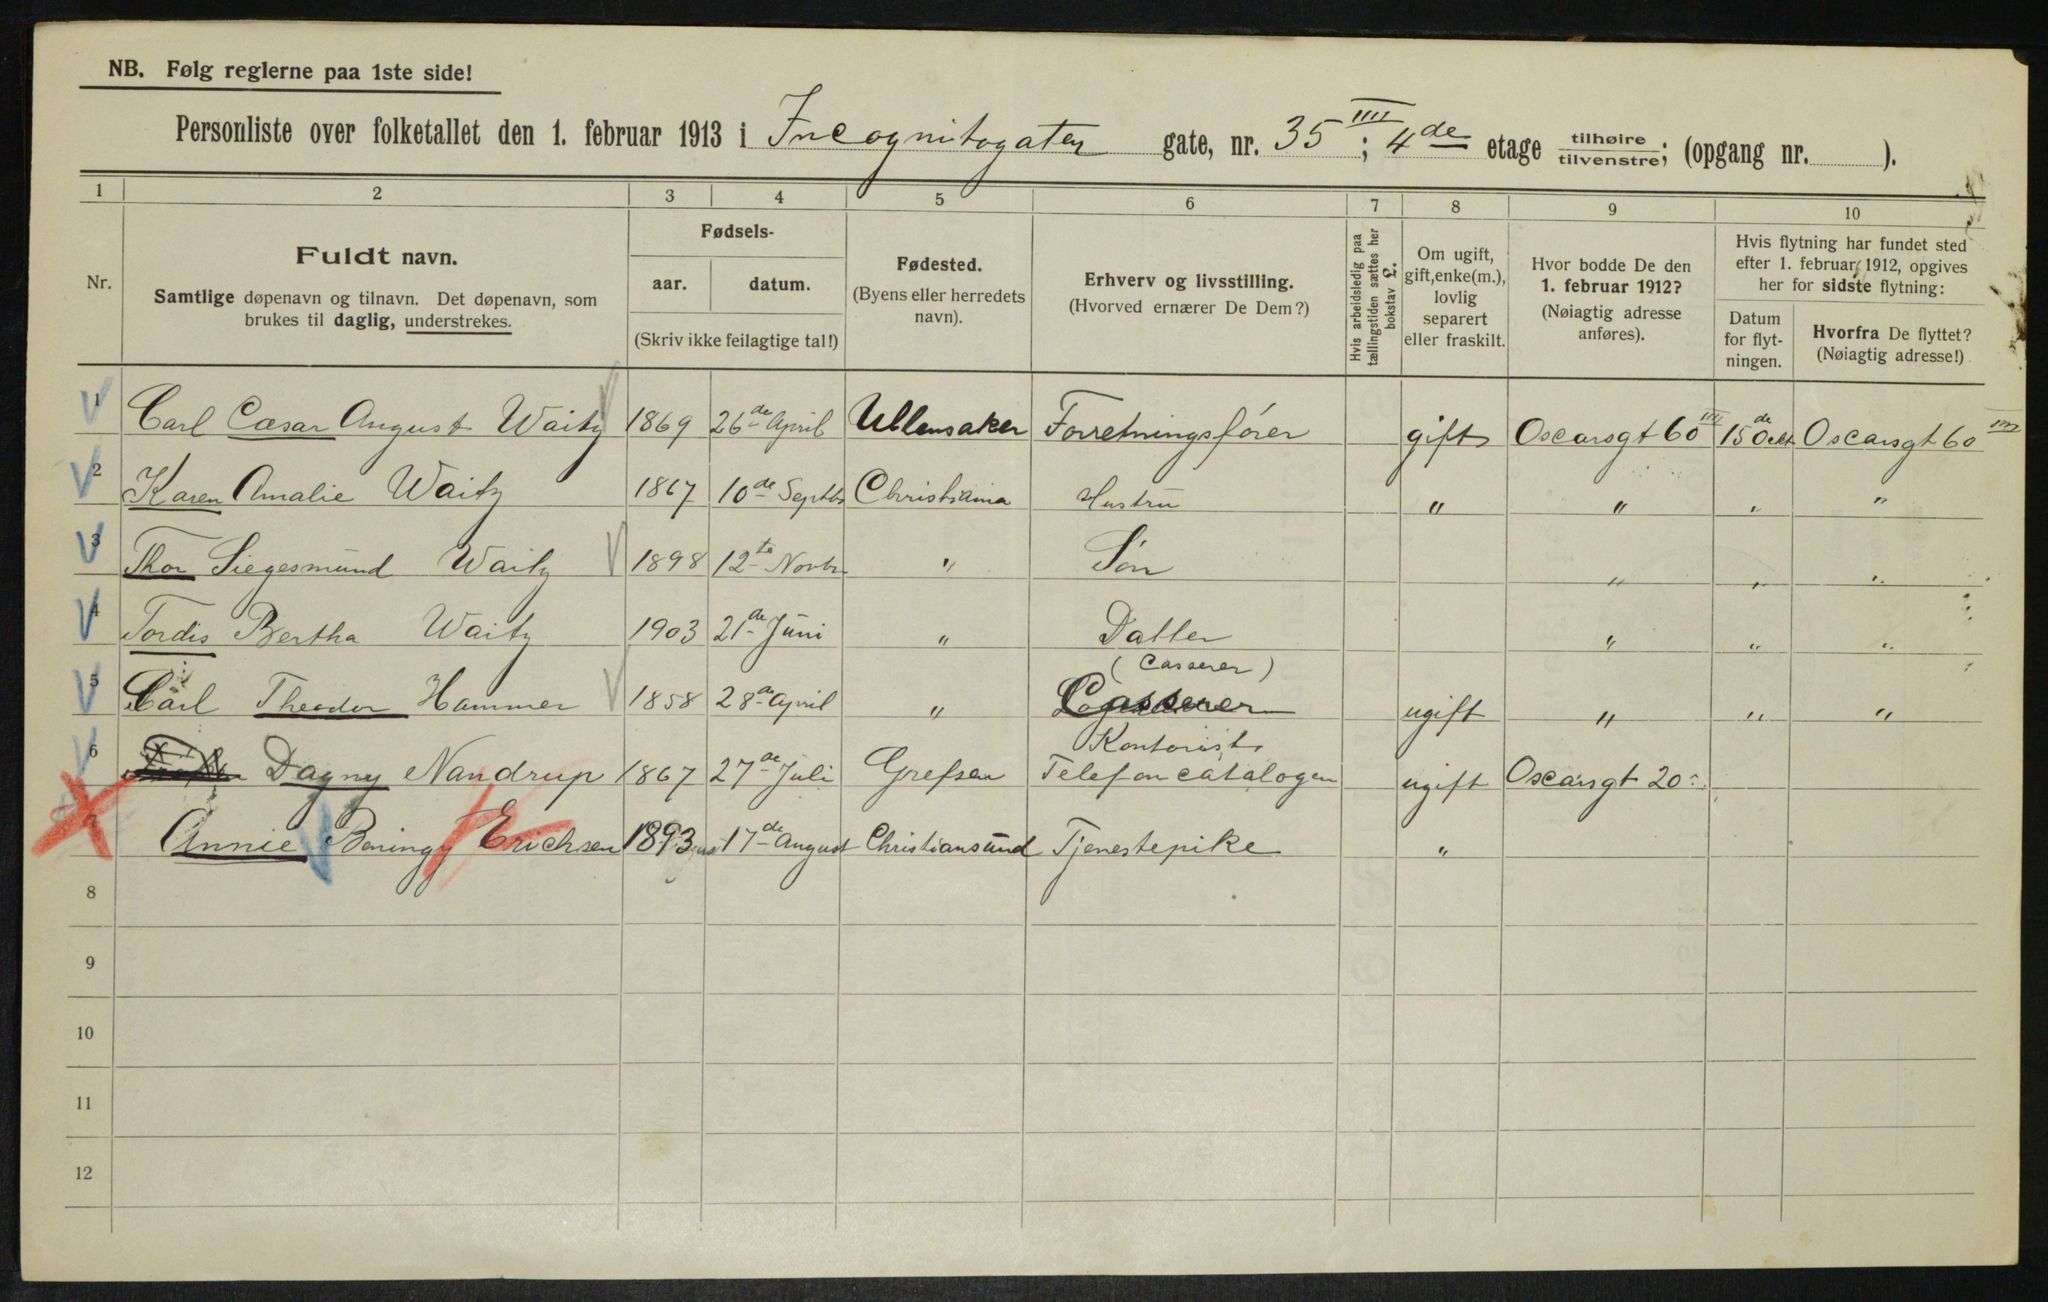 NB. Følg reglerne paa 1ste side!
Personliste over folketallet den 1. februar 1913 i Incognitogaten gate, nr. 35 IIII; 4de etage tilhøire/tilvenstre; (opgang nr. ).
1 2 3 4 5 6 7 8 9 10
Nr.
Fuldt navn.
Samtlige døpenavn og tilnavn. Det døpenavn, som
brukes til daglig, understrekes.
Fødsels-
aar. datum.
(Skriv ikke feilagtige tal!)
Fødested.
(Byens eller herredets
navn).
Erhverv og livsstilling.
(Hvorved ernærer De Dem?)
Hvis arbeidsledig paa
tællingstiden sættes her
bokstav L.
Om ugift,
gift, enke(m.),
lovlig
separert
eller fraskilt.
Hvor bodde De den
1. februar 1912?
(Nøiagtig adresse
anføres).
Hvis flytning har fundet sted
efter 1. februar 1912, opgives
her for sidste flytning:
Datum
for flyt-
ningen.
Hvorfra De flyttet?
(Nøiagtig adresse!)
1 Carl Cæsar August Waitz 1869 26de April Ullensaker Forretningsfører gift Oscarsgt 60 IIII 15de Oct Oscarsgt 60 IIII
2 Karen Amalie Waitz 1867 10de Septbr Christiania Hustru " " " "
3 Thor Siegesmund Waitz 1898 12te Novbr " Søn " " "
4 Tordis Bertha Waitz 1903 21de Juni " Datter " " "
(Casserer)
5 Carl Theodor Hammer 1858 28de April " Casserer ugift " " "
Kontorist
6 Dagny Nandrup 1867 27de Juli Grefsen Telefoncatalogen ugift Oscarsgt 20
7 Annie Beningy Erichsen 1893 17de August Christiansund Tjenestepike "
8
9
10
11
12